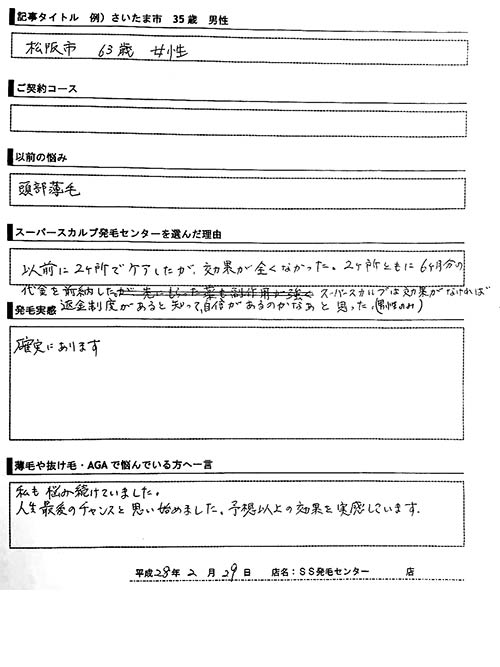 記事タイトル 例）さいたま市 35歳 男性
松阪市 63歳 女性
ご契約コース
以前の悩み
頭部薄毛
スーパースカルプ発毛センターを選んだ理由
以前に2ヶ所でケアしたが、効果が全くなかった。2ヶ所ともに6ヶ月分の
代金を前納した が、先にもらった薬も副作用が強く スーパースカルプは効果がなければ
返金制度があると知って、自信があるのかなぁと思った。(男性のみ)
発毛実感
確実にあります
薄毛や抜け毛・AGAで悩んでいる方へ一言
私も悩み続けていました。
人生最後のチャンスと思い始めました。予想以上の効果を実感しています。
平成28年2月29日 店名：SS発毛センター 店